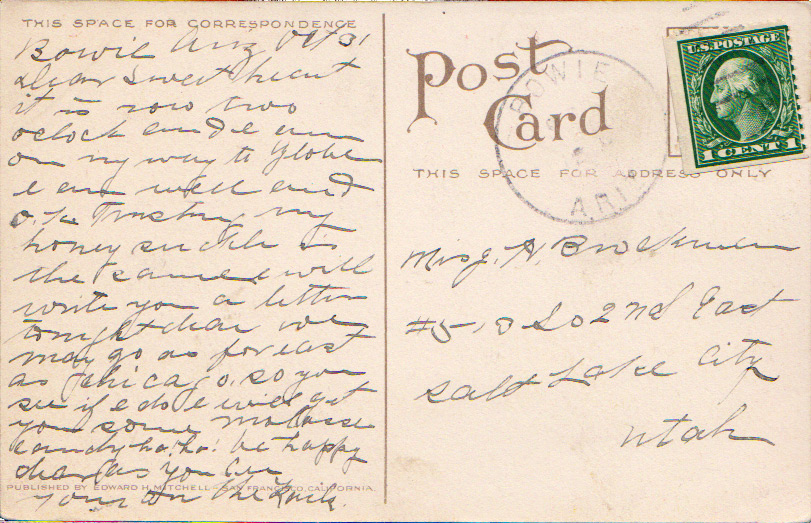 THIS SPACE FOR CORRESPONDENCE
Bowie Ariz Oct 31
Dear Sweetheart
it is now two
oclock and e am
on my way to Globe
e am well and
o.k. Trusting my
honey suckle is
the same e will
write you a letter
tonight dear we
may go as far east
as Chicago. so you
see if e do e will get
you some molasse
candy ha! ha! be happy
dear as you can
your on the
PUBLISHED BY EDWARD H. MITCHELL - SAN FRANCISCO, CALIFORNIA.
Post
Card
THIS SPACE FOR ADDRESS ONLY
BOWIE
ARIZ
U.S. POSTAGE
1 CENT 1
Mrs J. H. Brockman
#510 So 2nd East
Salt Lake City
Utah